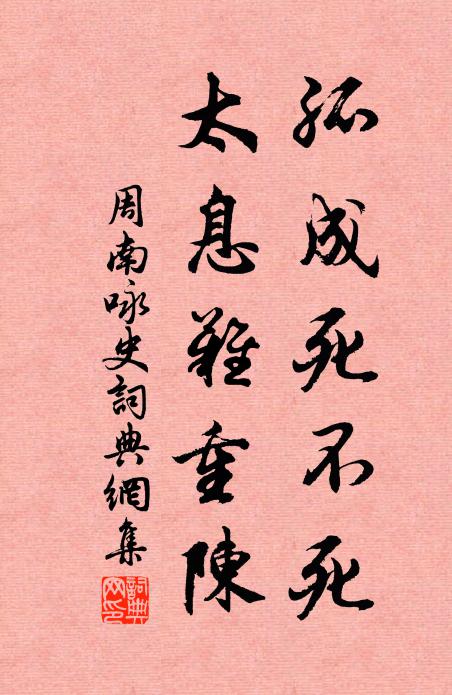 孤成死不死
太息難重陳
周南咏史詞典網集
詞典網印